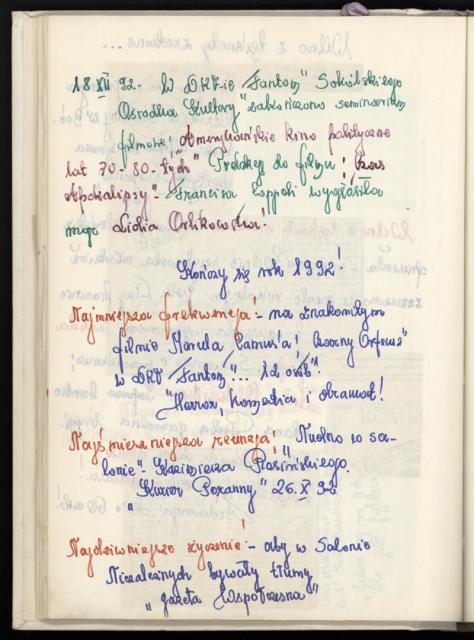 18 XII 92 - W DKF-ie "Fantom" Sokólskiego
Ośrodka Kultury zakończono seminarium
filmowe: "Amerykańskie kino polityczne
lat 70-80-tych" Prelekcję do filmu: "Czas
Apokalipsy" - Francisa Coppoli wygłosiła
mgr Lidia Orlikowska!
Kończy się rok 1992!
Najmniejsza frekwencja: - na znakomitym
filmie Marcela Camus'a: "Czarny Orfeusz"
w DKF "Fantom"... osób!
"Horror, komedia i dramat!
Najśmieszniejsza recenzja: "Nudno w sa-
lonie" - Kazimierza Płasińskiego
"Kurier Poranny" 26.X 92
Najdziwniejsze życzenie: - aby w Salonie
Niezależnych bywały tłumy
"Gazeta Współczesna"